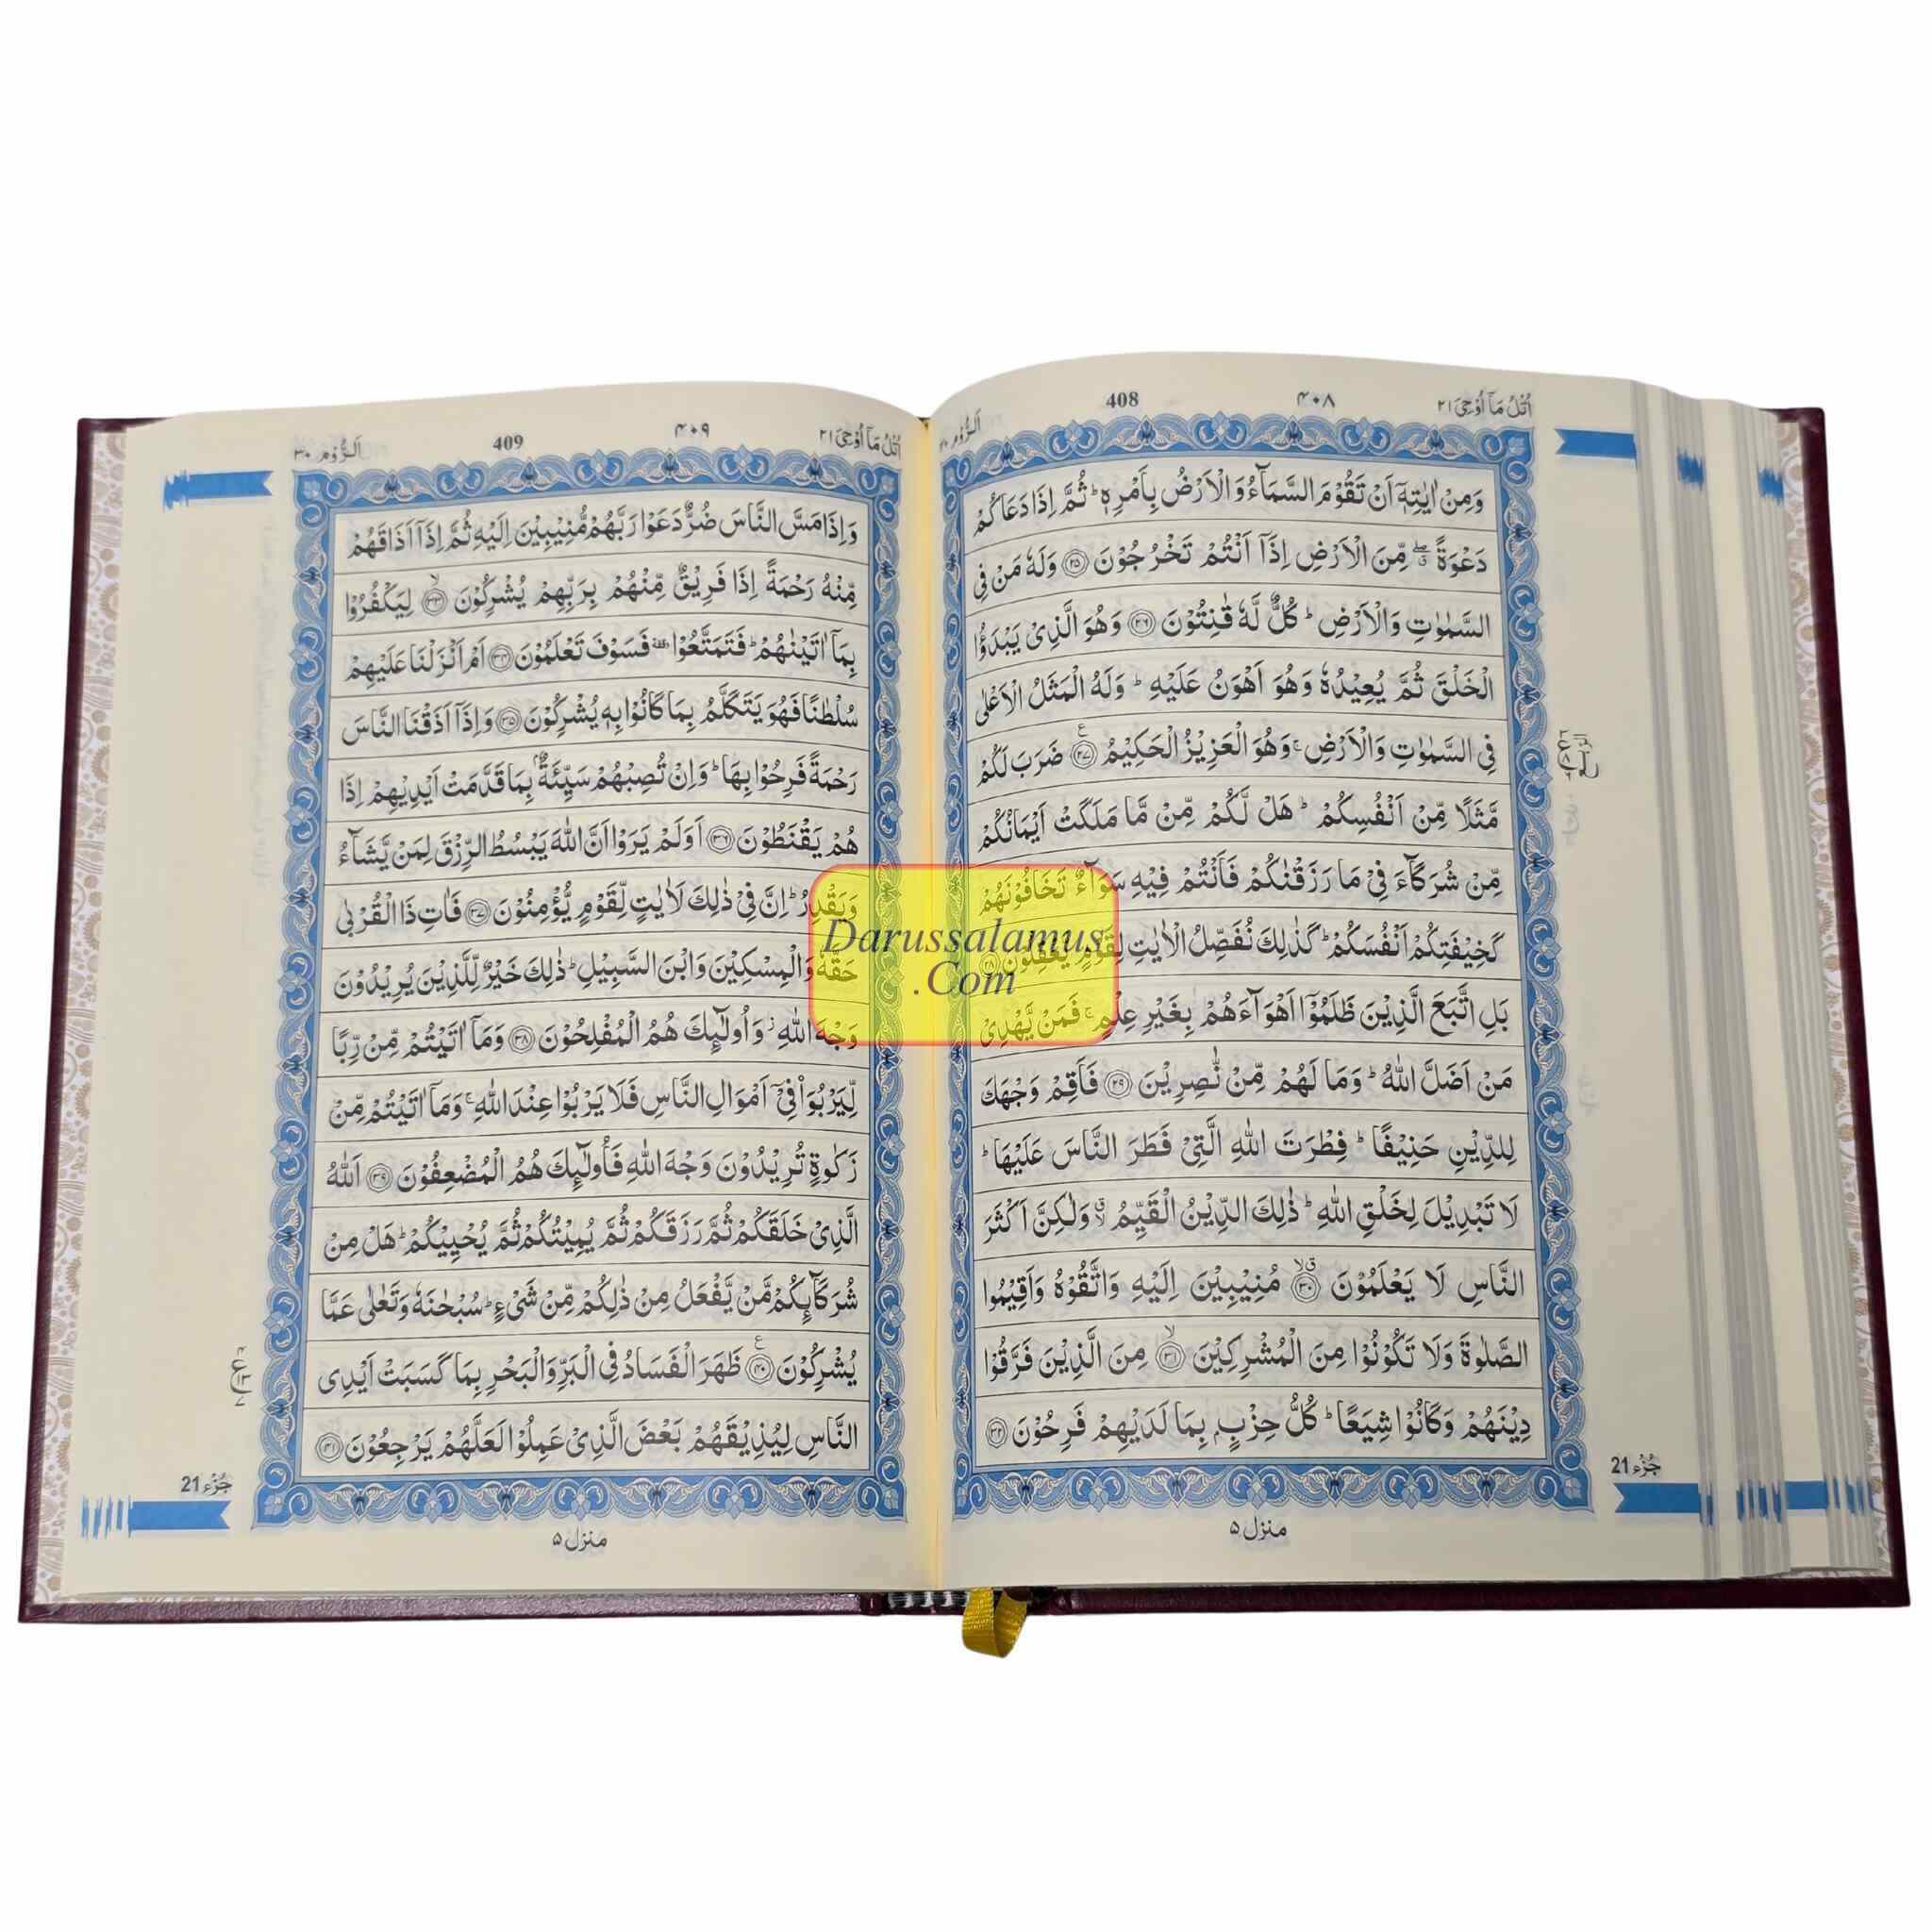 اُتْلُ مَآ اُوْحِیَ ۲۱ ۴۰۸ 408 اَلرُّوْم ۳۰
وَمِنْ اٰیٰتِهٖٓ اَنْ تَقُوْمَ السَّمَآءُ وَالْاَرْضُ بِاَمْرِهٖ ؕ ثُمَّ اِذَا دَعَاكُمْ
دَعْوَةً ۖۗ مِّنَ الْاَرْضِ اِذَاۤ اَنْتُمْ تَخْرُجُوْنَ ﴿۲۵﴾ وَلَهٗ مَنْ فِی
السَّمٰوٰتِ وَالْاَرْضِ ؕ كُلٌّ لَّهٗ قٰنِتُوْنَ ﴿۲۶﴾ وَهُوَ الَّذِیْ یَبْدَؤُا
الْخَلْقَ ثُمَّ یُعِیْدُهٗ وَهُوَ اَهْوَنُ عَلَیْهِ ؕ وَلَهُ الْمَثَلُ الْاَعْلٰی
فِی السَّمٰوٰتِ وَالْاَرْضِ ۚ وَهُوَ الْعَزِیْزُ الْحَكِیْمُ ﴿۲۷﴾ ضَرَبَ لَكُمْ
مَّثَلًا مِّنْ اَنْفُسِكُمْ ؕ هَلْ لَّكُمْ مِّنْ مَّا مَلَكَتْ اَیْمَانُكُمْ
مِّنْ شُرَكَآءَ فِیْ مَا رَزَقْنٰكُمْ فَاَنْتُمْ فِیْهِ سَوَآءٌ تَخَافُوْنَهُمْ
كَخِیْفَتِكُمْ اَنْفُسَكُمْ ؕ كَذٰلِكَ نُفَصِّلُ الْاٰیٰتِ لِقَوْمٍ یَّعْقِلُوْنَ ﴿۲۸﴾
بَلِ اتَّبَعَ الَّذِیْنَ ظَلَمُوْۤا اَهْوَآءَهُمْ بِغَیْرِ عِلْمٍ ۚ فَمَنْ یَّهْدِیْ
مَنْ اَضَلَّ اللّٰهُ ؕ وَمَا لَهُمْ مِّنْ نّٰصِرِیْنَ ﴿۲۹﴾ فَاَقِمْ وَجْهَكَ
لِلدِّیْنِ حَنِیْفًا ؕ فِطْرَتَ اللّٰهِ الَّتِیْ فَطَرَ النَّاسَ عَلَیْهَا ؕ
لَا تَبْدِیْلَ لِخَلْقِ اللّٰهِ ؕ ذٰلِكَ الدِّیْنُ الْقَیِّمُ ۙۗ وَلٰكِنَّ اَكْثَرَ
النَّاسِ لَا یَعْلَمُوْنَ ﴿۳۰﴾ مُنِیْبِیْنَ اِلَیْهِ وَاتَّقُوْهُ وَاَقِیْمُوا
الصَّلٰوةَ وَلَا تَكُوْنُوْا مِنَ الْمُشْرِكِیْنَ ﴿۳۱﴾ مِنَ الَّذِیْنَ فَرَّقُوْا
دِیْنَهُمْ وَكَانُوْا شِیَعًا ؕ كُلُّ حِزْبٍۭ بِمَا لَدَیْهِمْ فَرِحُوْنَ ﴿۳۲﴾
جُزْء 21
منزل ۵
اُتْلُ مَآ اُوْحِیَ ۲۱ ۴۰۹ 409 اَلرُّوْم ۳۰
وَاِذَا مَسَّ النَّاسَ ضُرٌّ دَعَوْا رَبَّهُمْ مُّنِیْبِیْنَ اِلَیْهِ ثُمَّ اِذَاۤ اَذَاقَهُمْ
مِّنْهُ رَحْمَةً اِذَا فَرِیْقٌ مِّنْهُمْ بِرَبِّهِمْ یُشْرِكُوْنَ ﴿۳۳﴾ لِیَكْفُرُوْا
بِمَاۤ اٰتَیْنٰهُمْ ؕ فَتَمَتَّعُوْا ۥ فَسَوْفَ تَعْلَمُوْنَ ﴿۳۴﴾ اَمْ اَنْزَلْنَا عَلَیْهِمْ
سُلْطٰنًا فَهُوَ یَتَكَلَّمُ بِمَا كَانُوْا بِهٖ یُشْرِكُوْنَ ﴿۳۵﴾ وَاِذَاۤ اَذَقْنَا النَّاسَ
رَحْمَةً فَرِحُوْا بِهَا ؕ وَاِنْ تُصِبْهُمْ سَیِّئَةٌۢ بِمَا قَدَّمَتْ اَیْدِیْهِمْ اِذَا
هُمْ یَقْنَطُوْنَ ﴿۳۶﴾ اَوَلَمْ یَرَوْا اَنَّ اللّٰهَ یَبْسُطُ الرِّزْقَ لِمَنْ یَّشَآءُ
وَیَقْدِرُ ؕ اِنَّ فِیْ ذٰلِكَ لَاٰیٰتٍ لِّقَوْمٍ یُّؤْمِنُوْنَ ﴿۳۷﴾ فَاٰتِ ذَا الْقُرْبٰی
حَقَّهٗ وَالْمِسْكِیْنَ وَابْنَ السَّبِیْلِ ؕ ذٰلِكَ خَیْرٌ لِّلَّذِیْنَ یُرِیْدُوْنَ
وَجْهَ اللّٰهِ ؗ وَاُولٰٓئِكَ هُمُ الْمُفْلِحُوْنَ ﴿۳۸﴾ وَمَاۤ اٰتَیْتُمْ مِّنْ رِّبًا
لِّیَرْبُوَا۠ فِیْۤ اَمْوَالِ النَّاسِ فَلَا یَرْبُوْا عِنْدَ اللّٰهِ ۚ وَمَاۤ اٰتَیْتُمْ مِّنْ
زَكٰوةٍ تُرِیْدُوْنَ وَجْهَ اللّٰهِ فَاُولٰٓئِكَ هُمُ الْمُضْعِفُوْنَ ﴿۳۹﴾ اَللّٰهُ
الَّذِیْ خَلَقَكُمْ ثُمَّ رَزَقَكُمْ ثُمَّ یُمِیْتُكُمْ ثُمَّ یُحْیِیْكُمْ ؕ هَلْ مِنْ
شُرَكَآئِكُمْ مَّنْ یَّفْعَلُ مِنْ ذٰلِكُمْ مِّنْ شَیْءٍ ؕ سُبْحٰنَهٗ وَتَعٰلٰی عَمَّا
یُشْرِكُوْنَ ﴿۴۰﴾ ظَهَرَ الْفَسَادُ فِی الْبَرِّ وَالْبَحْرِ بِمَا كَسَبَتْ اَیْدِی
النَّاسِ لِیُذِیْقَهُمْ بَعْضَ الَّذِیْ عَمِلُوْا لَعَلَّهُمْ یَرْجِعُوْنَ ﴿۴۱﴾
جُزْء 21
منزل ۵
Darussalamus
.Com